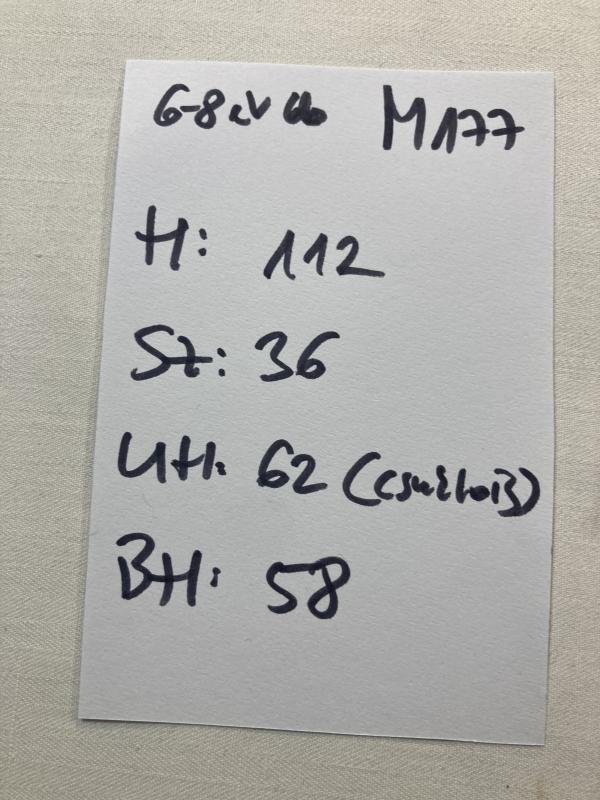 6-8 év kb M177
H: 112
Sz: 36
UH: 62 (csuklóig)
BH: 58